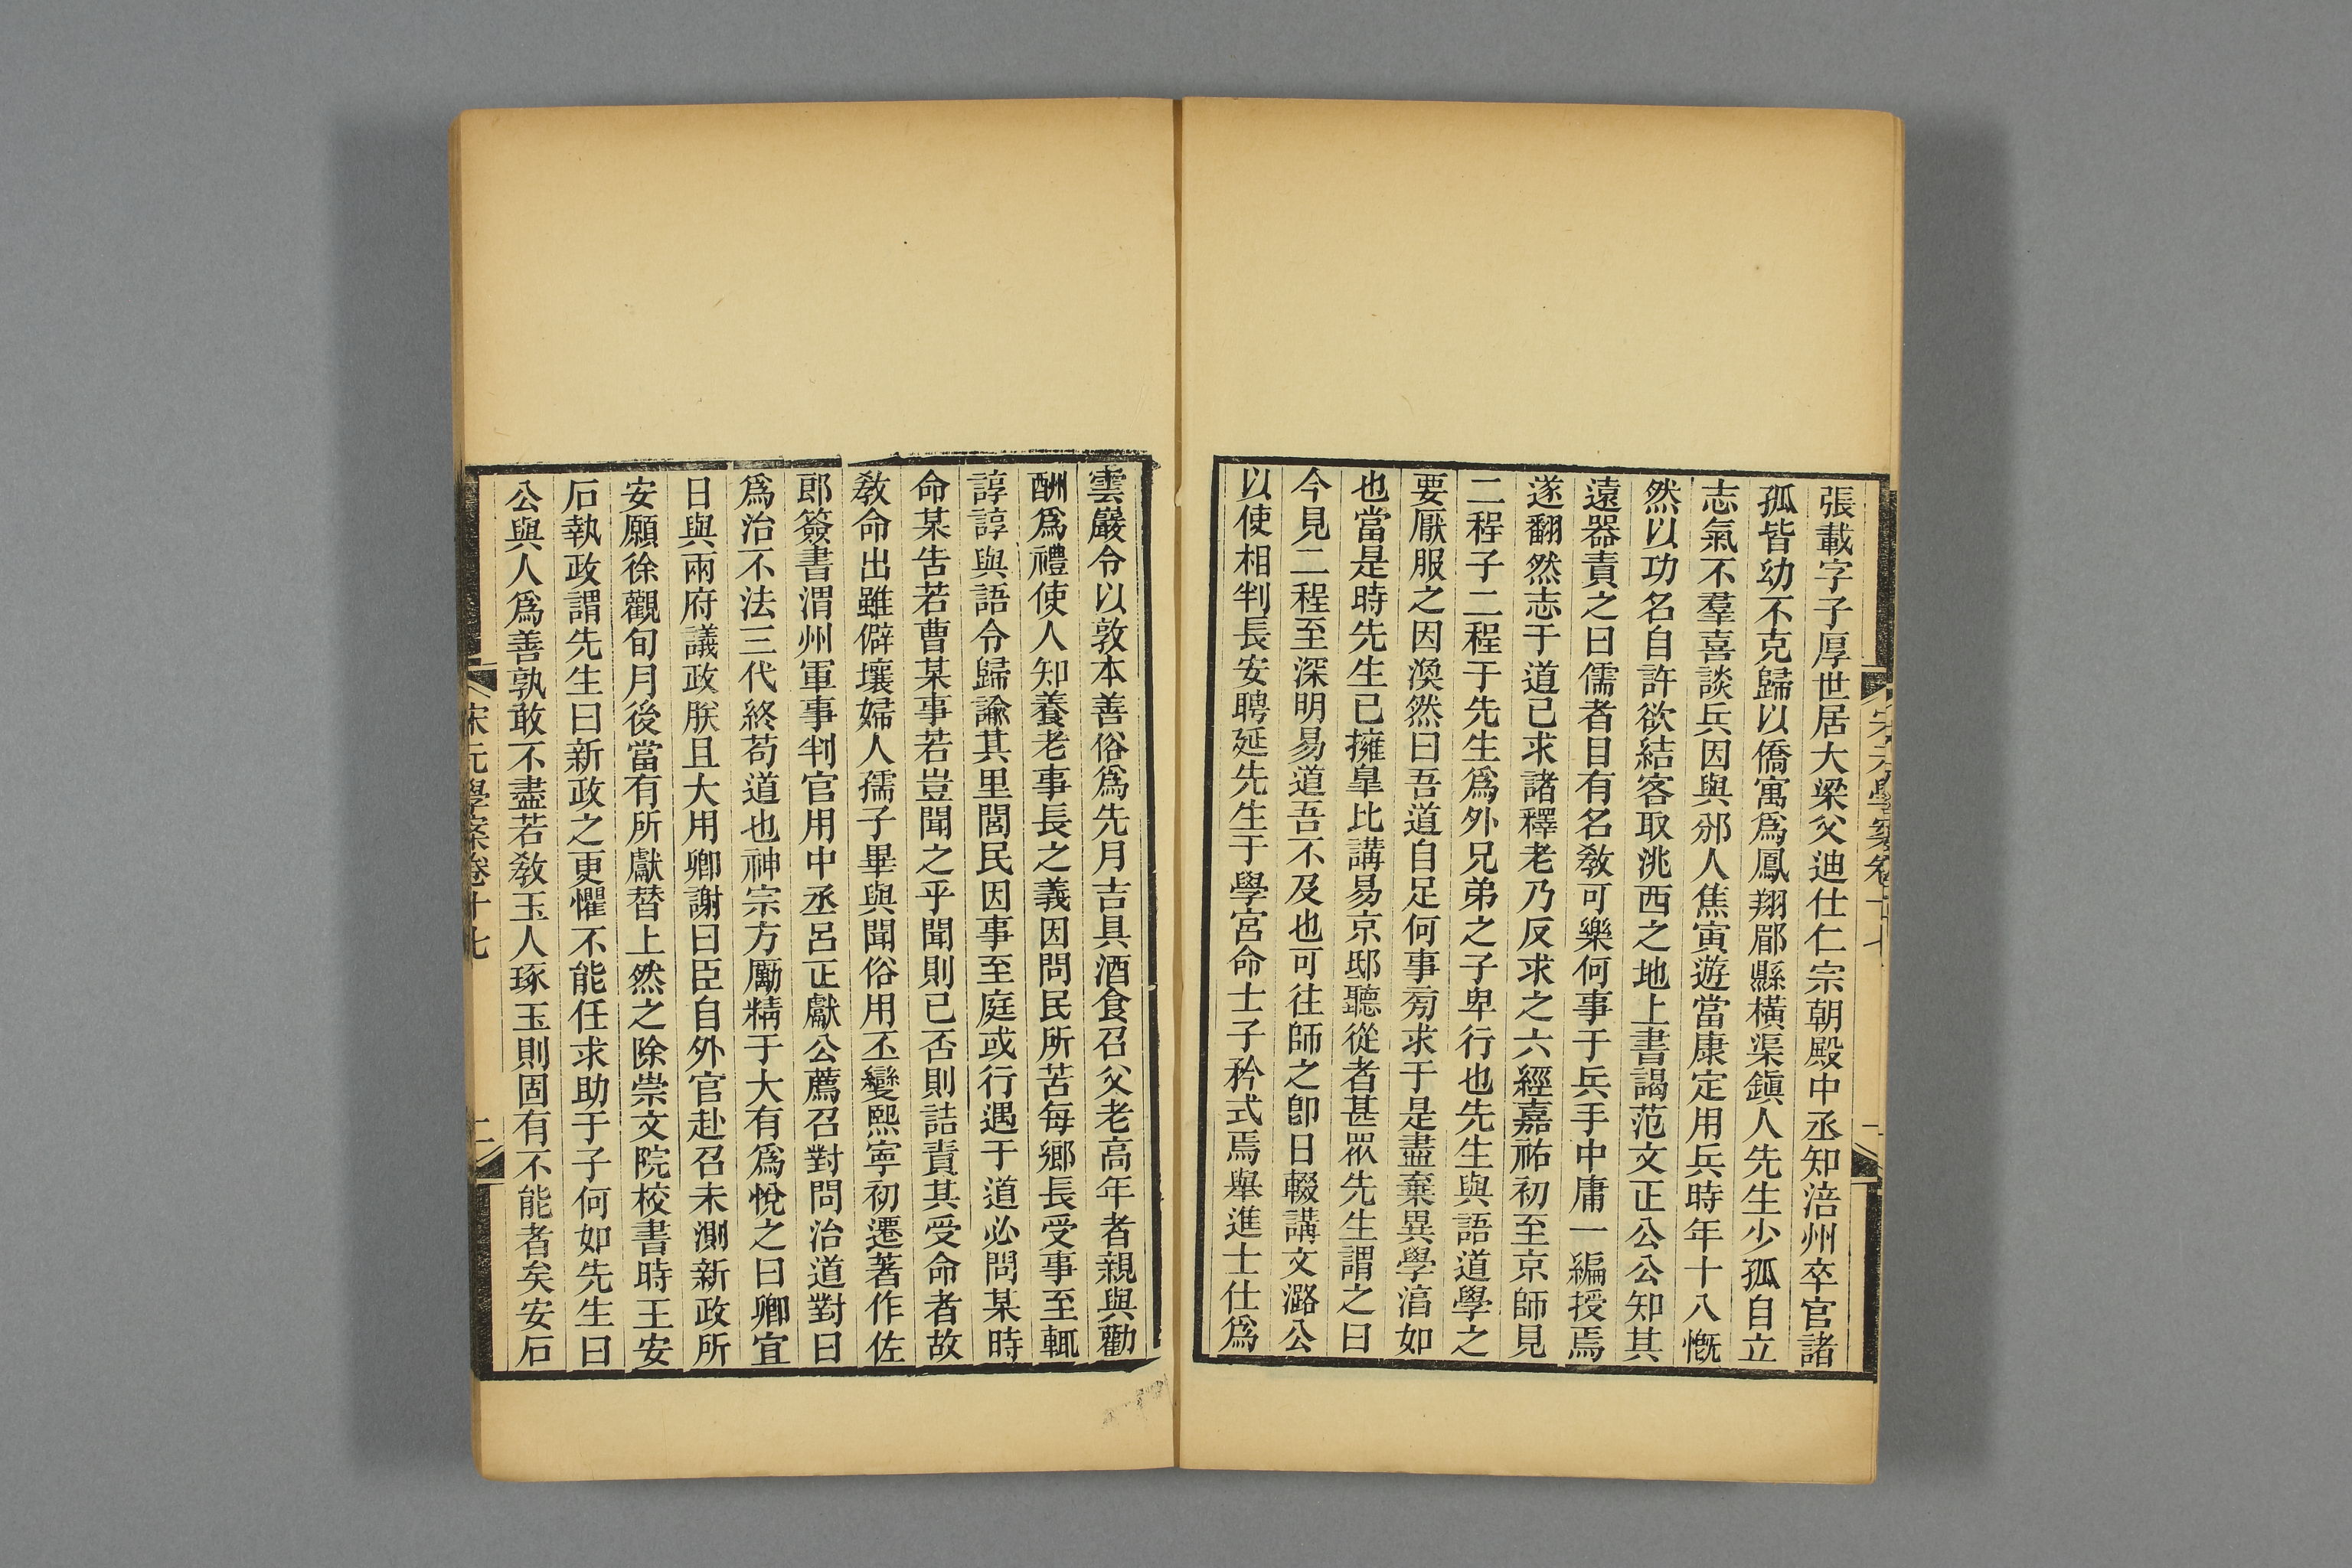 張載字子厚世居大梁父迪仕仁宗朝殿中丞知涪州卒官諸
孤皆幼不克歸以僑寓爲鳳翔郿縣橫渠鎭人先生少孤自立
志氣不羣喜談兵因與邠人焦寅遊當康定用兵時年十八慨
然以功名自許欲結客取洮西之地上書謁范文正公公知其
遠器責之曰儒者自有名敎可樂何事于兵手中庸一編授焉
遂翻然志于道已求諸釋老乃反求之六經嘉祐初至京師見
二程子二程于先生爲外兄弟之子卑行也先生與語道學之
要厭服之因渙然曰吾道自足何事旁求于是盡棄異學淯如
也當是時先生已擁臯比講易京邸聽從者甚眾先生謂之曰
今見二程至深明易道吾不及也可往師之卽日輟講文潞公
以使相判長安聘延先生于學宮命士子矜式焉舉進士仕爲
雲巖令以敦本善俗爲先月吉具酒食召父老高年者親與勸
酬爲禮使人知養老事長之義因問民所苦每鄉長受事至輒
諄諄與語令歸諭其里閭民因事至庭或行遇于道必問某時
命某告若曹某事若豈聞之乎聞則已否則詰責其受命者故
敎命出雖僻壤婦人孺子畢與聞俗用丕變熙寧初遷著作佐
郎簽書渭州軍事判官用中丞呂正獻公薦召對問治道對曰
爲治不法三代終苟道也神宗方勵精于大有爲悅之曰卿宜
日與兩府議政朕且大用卿謝曰臣自外官赴召未測新政所
安願徐觀旬月後當有所獻替上然之除崇文院校書時王安
石執政謂先生曰新政之更懼不能任求助于子何如先生曰
公與人爲善孰敢不盡若敎玉人琢玉則固有不能者矣安石
宋元學案卷十七
二